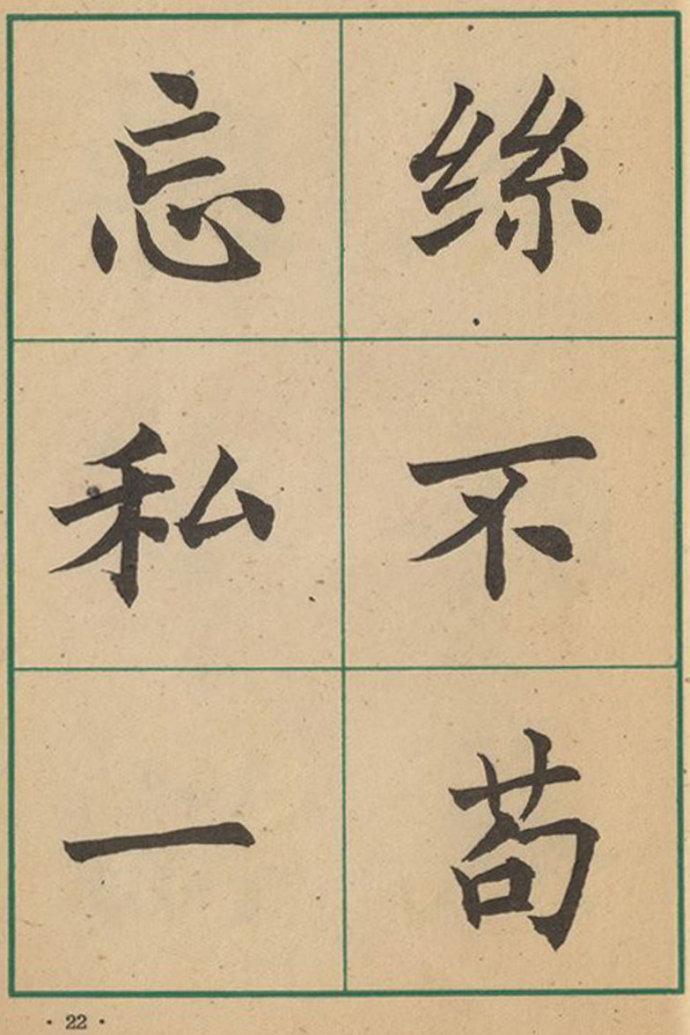 忘私一
絲不苟
· 22 ·